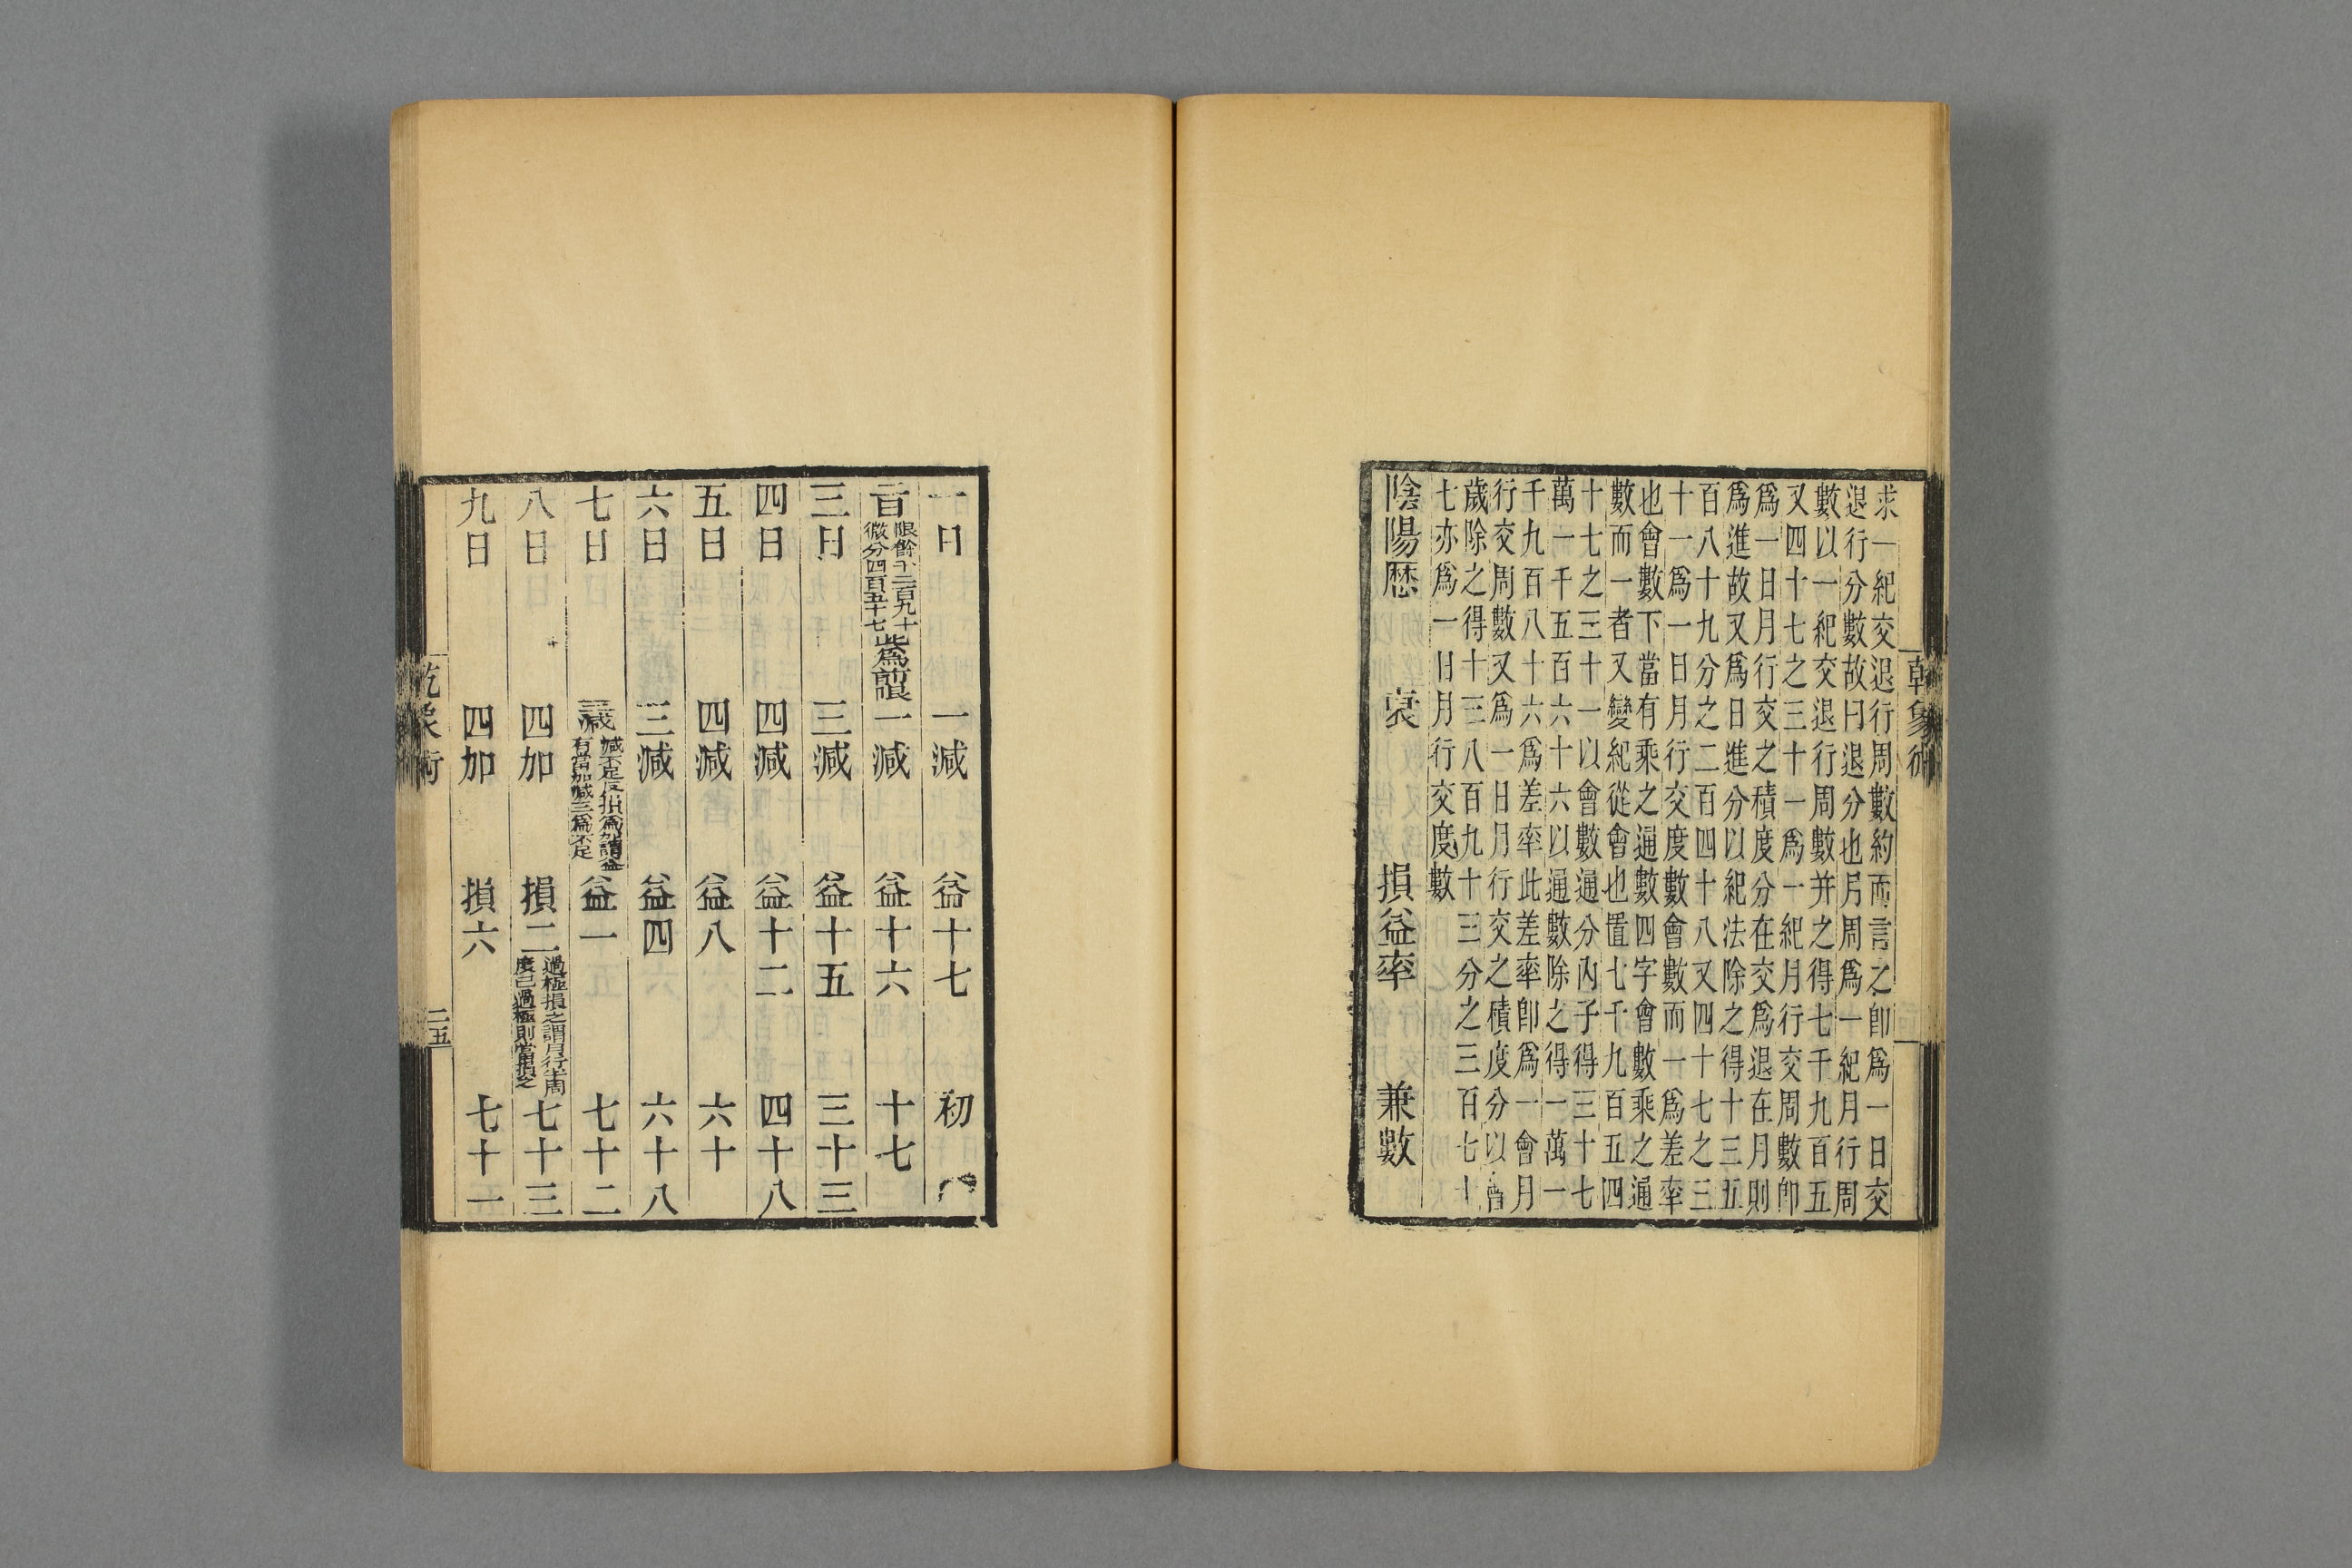 乾象術
求一紀交退行周數約而言之卽爲一日交
退行分數故曰退分也月周爲一紀月行周
數以一紀交退行周數并之得七千九百五
又四十七之三十一爲一紀月行交周數卽
爲一日月行交之積度分在交爲退在月則
爲進故又爲日進分以紀法除之得十三五
百八十九分之二百四十八又四十七之三
十一爲一日月行交度數會數而一爲差率
也會數下當有乘之通數四字會數乘之通
數而一者又變紀從會也置七千九百五四
十七之三十一以會數通分內子得三十七
萬一千五百六十六以通數除之得一萬一
千九百八十六爲差率此差率卽爲一會月
行交周數又爲一日月行交之積度分以會
歲除之得十三八百九十三分之三百七十
七亦爲一日月行交度數
陰陽歷 衰 損益率 兼數
一日 一減 益十七 初
二日 限餘千二百九十微分四百五十七此爲前限 一減 益十六 十七
三日 三減 益十五 三十三
四日 四減 益十二 四十八
五日 四減 益八 六十
六日 三減 益四 六十八
七日 三減 減不足反損爲加謂益有一當加減三爲不足 益一 七十二
八日 四加 損二 過極損之謂月行半周度已過極則當損之 七十三
九日 四加 損六 七十一
乾象術 二五